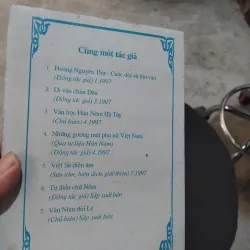 Cùng một tác giả
1. Hoàng Nguyên Thự - Cuộc đời và thơ văn
(Đồng tác giả) 1.1997
2. Di văn chùa Dâu
(Đồng tác giả) 3.1997
3. Văn học Hán Nôm Hà Tây
(Chủ biên) 4.1997
4. Những gương mặt phụ nữ Việt Nam
(Qua tư liệu Hán Nôm)
(Đồng tác giả) 4.1997
5. Việt Sử diễn âm
(Sưu tầm, biên dịch, giới thiệu) 7.1997
6. Từ điển chữ Nôm
(Đồng tác giả) Sắp xuất bản
7. Văn Nôm thời Lê
(Chủ biên) Sắp xuất bản